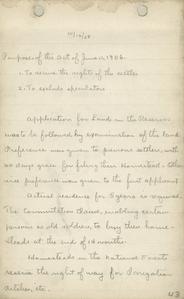 10/10/08
Purpose of the Act of June 11, 1906.
1. To secure the right of the settler
2. To exclude speculators
Application for Land in the Reserves
was to be followed by examination of the land
Preference was given to persons settlers, with
60 days grace for filing their Homestead. Other-
wise preference was given to the first applicant
Actual residence for 5 years is required.
The Commutation Clause, enabling certain
persons as old soldiers, to buy their home-
steads at the end of 14 months.
Homesteads in the National Forests
reserve the right of way for Irrigation
ditches, etc.
43